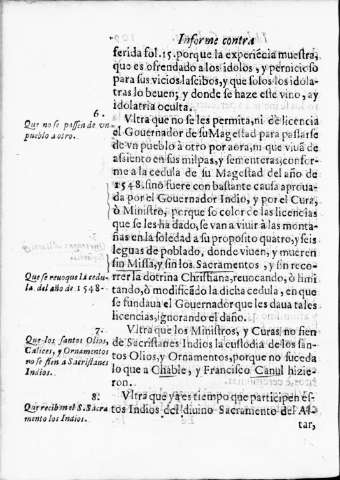 Informe contra
ferida fol. 15. porque la experiẽcia muestra,
que es ofrendado a los idolos, y pernicioso
para sus vicios lascibos, y que solos los idola-
tras lo beuen; y donde se haze este vino, ay
idolatria oculta.
6.
Que no se passen de vn
pueblo a otro.
Vltra que no se les permita, ni de licencia
el Gouernador de su Magestad para passarse
de vn pueblo à otro por aora, ni que viuã de
assiento en sus milpas, y sementeras, confor-
me a la cedula de su Magestad del año de
1548. sino fuere con bastante causa aproua-
da por el Gouernador Indio, y por el Cura,
ò Ministro, porque so color de las licencias
que se les ha dado, se van a viuir à las monta-
ñas en la soledad a su proposito quatro, y seis
leguas de poblado, donde viuen, y mueren
sin Missa, y sin los Sacramentos, y sin reco-
Que se reuoque la cedu-
la del año de 1548.
rrer la dotrina Christiana, reuocando, ò limi
tando, ò modificãdo la dicha cedula, en que
se fundaua el Gouernador que les daua tales
licencias, ignorando el daño.
7.
Que los santos Olios,
Calices, y Ornamentos
no se fien a Sacristanes
Indios.
Vltra que los Ministros, y Curas no fien
de Sacristanes Indios la custodia de los san-
tos Olios, y Ornamentos, porque no suceda
lo que a Chable, y Francisco Canul hizie-
ron.
8.
Que reciban el S. Sacra
mento los Indios.
Vltra que ya es tiempo que participen es-
tos Indios del diuino Sacramento del Al-
tar,